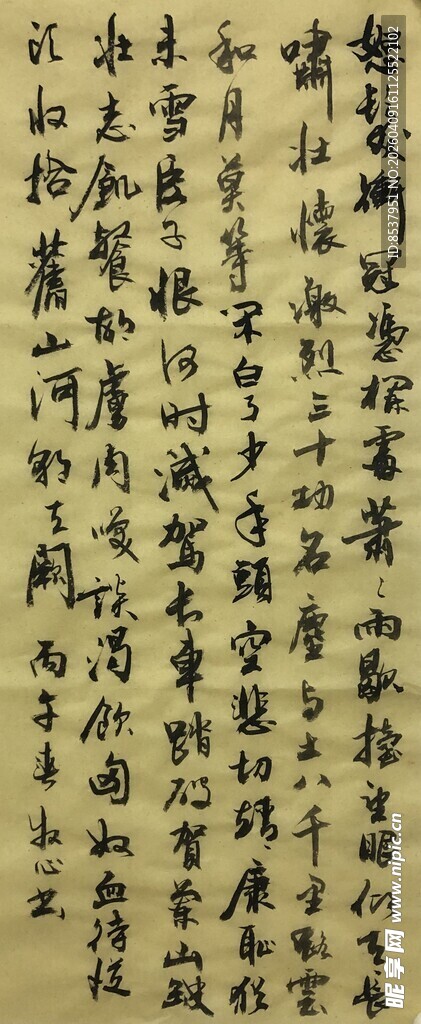 怒髮衝冠憑欄處蕭々雨歇擡望眼仰天長
嘯壯懷激烈三十功名塵与土八千里路雲
和月莫等閑白了少年頭空悲切靖康恥猶
未雪臣子恨何时滅駕長車踏破賀蘭山缺
壯志飢餐胡虜肉笑談渴飲匈奴血待從
头收拾舊山河朝天闕 丙午春牧心书
ID:8537951 NO:20260409161125522102
昵享网 www.nipic.cn